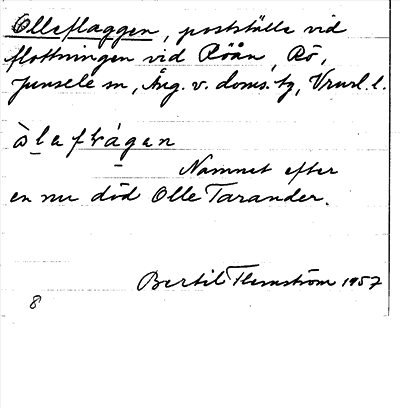 Olleflaggen, postställe vid
flottningen vid Röån, Rö,
Junsele sn, Ång. v. doms. tg, l.
òlaflágan
Namnet efter
en nu död Olle Tarander.
Bertil Flemström 1957
8